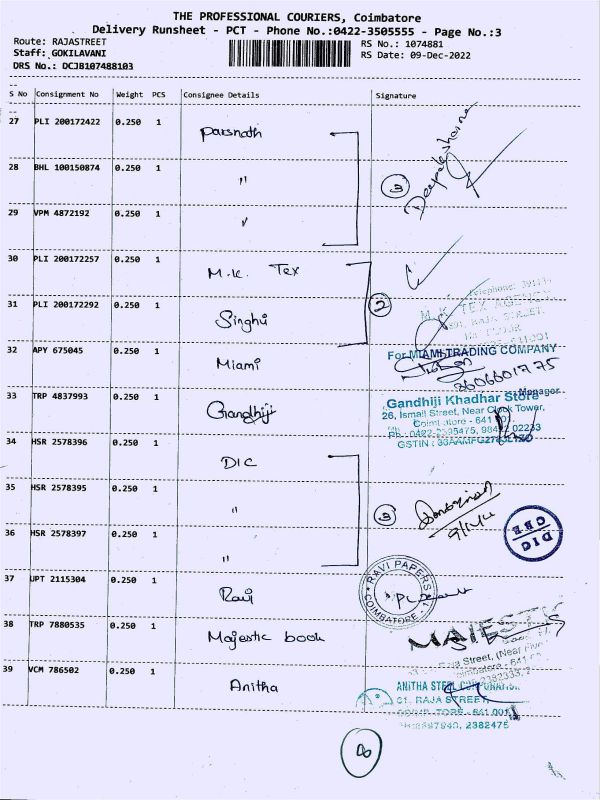 THE PROFESSIONAL COURIERS, Coimbatore
Delivery Runsheet - PCT - Phone No.:0422-3505555 - Page No.:3
Route: RAJASTREET
RS No.: 1074881
Staff: GOKILAVANI
RS Date: 09-Dec-2022
DRS No.: DCJB107488103
S No Consignment No Weight PCS Consignee Details Signature
27 PLI 200172422 0.250 1 Parsnath
28 BHL 100150874 0.250 1 "
3 Deepak sharma
29 VPM 4872192 0.250 1 "
30 PLI 200172257 0.250 1 M.K. Tex
31 PLI 200172292 0.250 1 Singhi
2
M.K TEX AGENCY
32 APY 675045 0.250 1 Miami
For MIAMI TRADING COMPANY
Manager
33 TRP 4837993 0.250 1 Gandhiji
Gandhiji Khadhar Store
26, Ismail Street, Near Clock Tower,
34 HSR 2578396 0.250 1 DIC
35 HSR 2578395 0.250 1 "
3
DIC
CBE
36 HSR 2578397 0.250 1 "
37 UPT 2115304 0.250 1 Ravi
RAVI PAPERS
COIMBATORE - 1
38 TRP 7880535 0.250 1 Majestic book
MAJESTIC
Street, (Near
39 VCM 786502 0.250 1 Anitha
ANITHA STEEL CORPORATION
61, RAJA STREET,
2382475